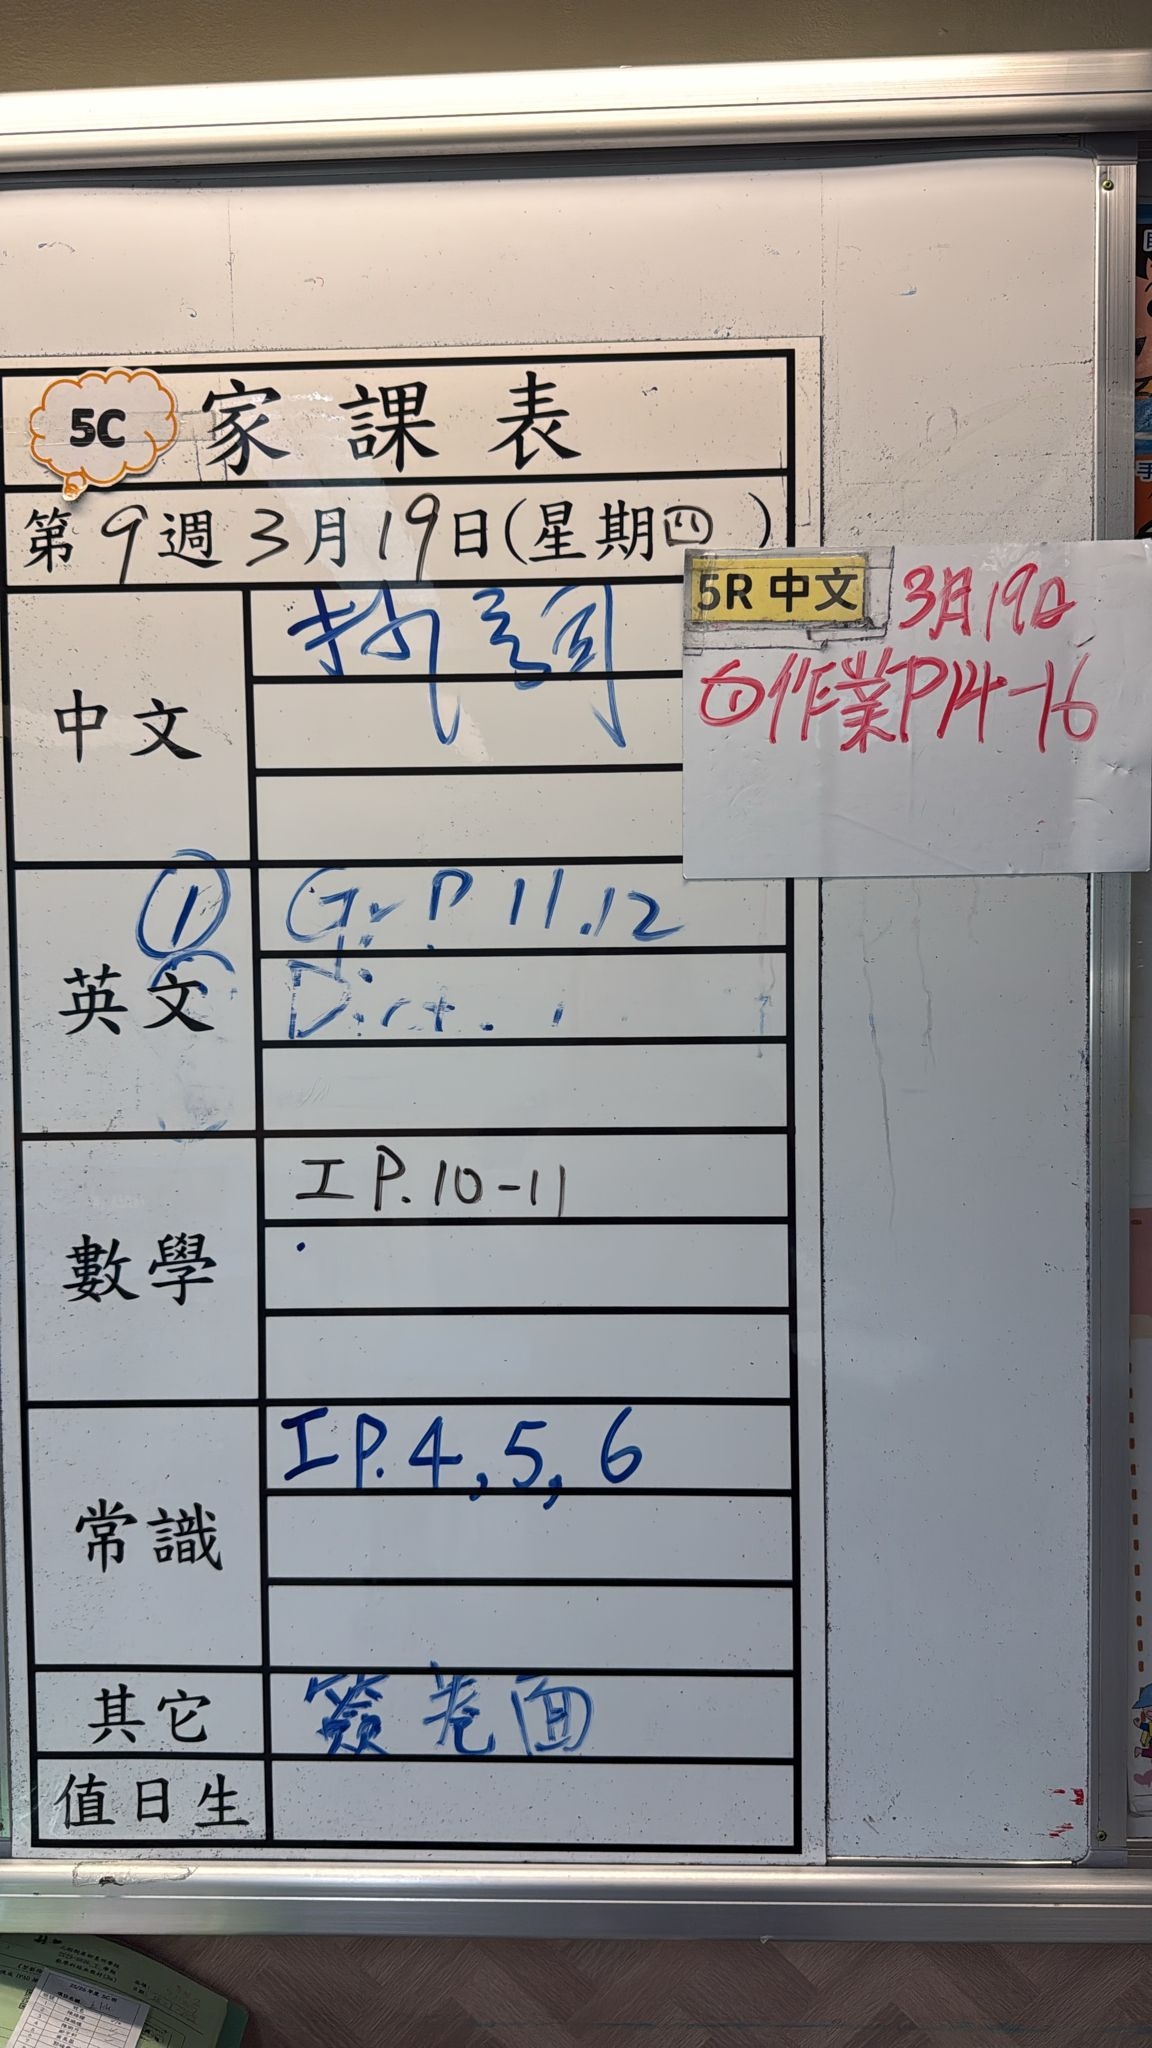 5C 家課表
第9週3月19日(星期四)
中文
抄詞
5R 中文 3月19日
①作業P14-16
英文
① Gr. P.11.12
Dict.
數學
工 P.10-11
常識
工 P.4,5,6
其它
簽卷面
值日生